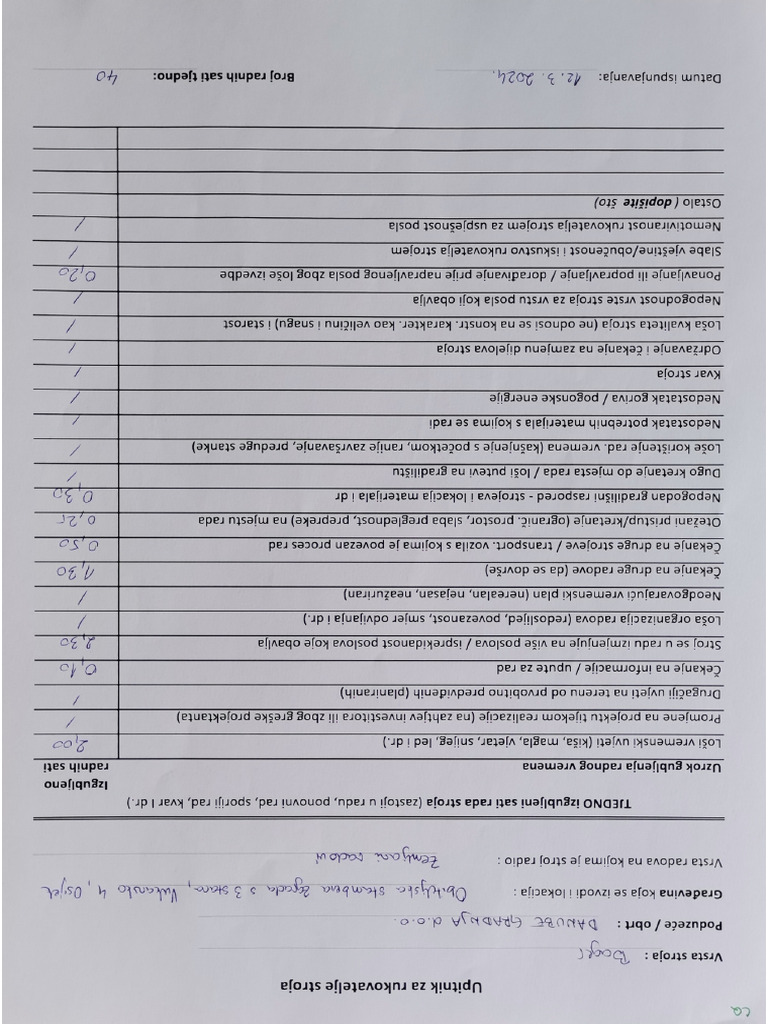 CQ
Upitnik za rukovatelje stroja
Vrsta stroja : Bager
Poduzeće / obrt : DANUBE GRADNJA d.o.o.
Građevina koja se izvodi i lokacija : Obiteljska stambena zgrada s 3 stana, 4, Osijek
Vrsta radova na kojima je stroj radio : Zemljani radovi
TJEDNO izgubljeni sati rada stroja (zastoji u radu, ponovni rad, sporiji rad, kvar I dr.)
Uzrok gubljenja radnog vremena Izgubljeno radnih sati
Loši vremenski uvjeti (kiša, magla, vjetar, snijeg, led i dr.) 2,00
Promjene na projektu tijekom realizacije (na zahtjev investitora ili zbog greške projektanta) /
Drugačiji uvjeti na terenu od prvobitno predviđenih (planiranih) /
Čekanje na informacije / upute za rad 0,10
Stroj se u radu izmjenjuje na više poslova / isprekidanost poslova koje obavlja 2,30
Loša organizacija radova (redoslijed, povezanost, smjer odvijanja i dr.) /
Neodgovarajući vremenski plan (nerealan, nejasan, neažuriran) /
Čekanje na druge radove (da se dovrše) 1,30
Čekanje na druge strojeve / transport. vozila s kojima je povezan proces rad 0,50
Otežani pristup/kretanje (ogranič. prostor, slaba preglednost, prepreke) na mjestu rada 0,25
Nepogodan gradilišni raspored - strojeva i lokacija materijala i dr 0,30
Dugo kretanje do mjesta rada / loši putevi na gradilištu /
Loše korištenje rad. vremena (kašnjenje s početkom, ranije završavanje, preduge stanke) /
Nedostatak potrebnih materijala s kojima se radi /
Nedostatak goriva / pogonske energije /
Kvar stroja /
Održavanje i čekanje na zamjenu dijelova stroja /
Loša kvaliteta stroja (ne odnosi se na konstr. karakter. kao veličinu i snagu) i starost /
Nepogodnost vrste stroja za vrstu posla koji obavlja /
Ponavljanje ili popravljanje / dorađivanje prije napravljenog posla zbog loše izvedbe 0,20
Slabe vještine/obučenost i iskustvo rukovatelja strojem /
Nemotiviranost rukovatelja strojem za uspješnost posla /
Ostalo ( dopišite što)
Datum ispunjavanja: 12. 3. 2024. Broj radnih sati tjedno: 40